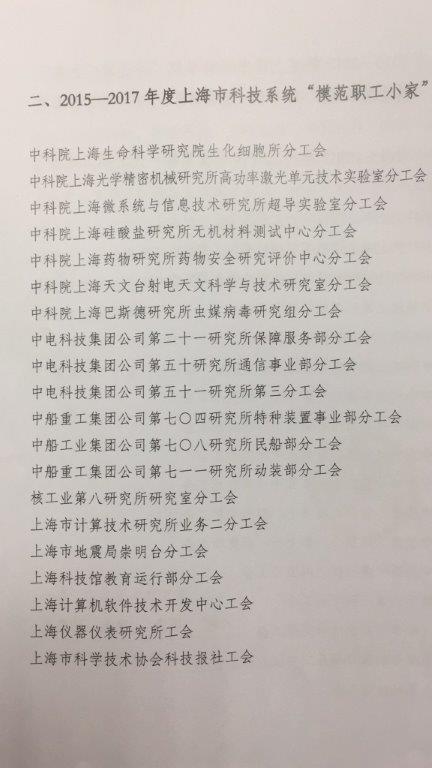 二、2015—2017年度上海市科技系统“模范职工小家”
中科院上海生命科学研究院生化细胞所分工会
中科院上海光学精密机械研究所高功率激光单元技术实验室分工会
中科院上海微系统与信息技术研究所超导实验室分工会
中科院上海硅酸盐研究所无机材料测试中心分工会
中科院上海药物研究所药物安全研究评价中心分工会
中科院上海天文台射电天文科学与技术研究室分工会
中科院上海巴斯德研究所虫媒病毒研究组分工会
中电科技集团公司第二十一研究所保障服务部分工会
中电科技集团公司第五十研究所通信事业部分工会
中电科技集团公司第五十一研究所第三分工会
中船重工集团公司第七〇四研究所特种装置事业部分工会
中船工业集团公司第七〇八研究所民船部分工会
中船重工集团公司第七一一研究所动装部分工会
核工业第八研究所研究室分工会
上海市计算技术研究所业务二分工会
上海市地震局崇明台分工会
上海科技馆教育运行部分工会
上海计算机软件技术开发中心工会
上海仪器仪表研究所工会
上海市科学技术协会科技报社工会